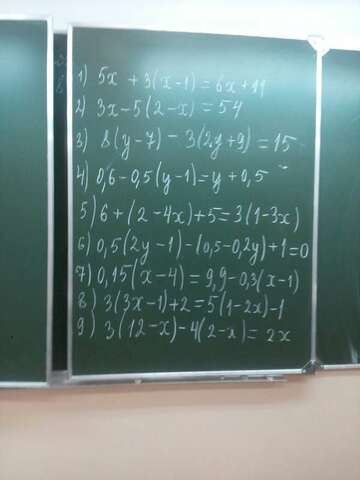 1) 5x + 3(x-1) = 6x + 11
2) 3x - 5(2-x) = 54
3) 8(y-7) - 3(2y+9) = 15
4) 0,6 - 0,5(y-1) = y + 0,5
5) 6 + (2-4x) + 5 = 3(1-3x)
6) 0,5(2y-1) - (0,5-0,2y) + 1 = 0
7) 0,15(x-4) = 9,9 - 0,3(x-1)
8) 3(3x-1) + 2 = 5(1-2x) - 1
9) 3(12-x) - 4(2-x) = 2x